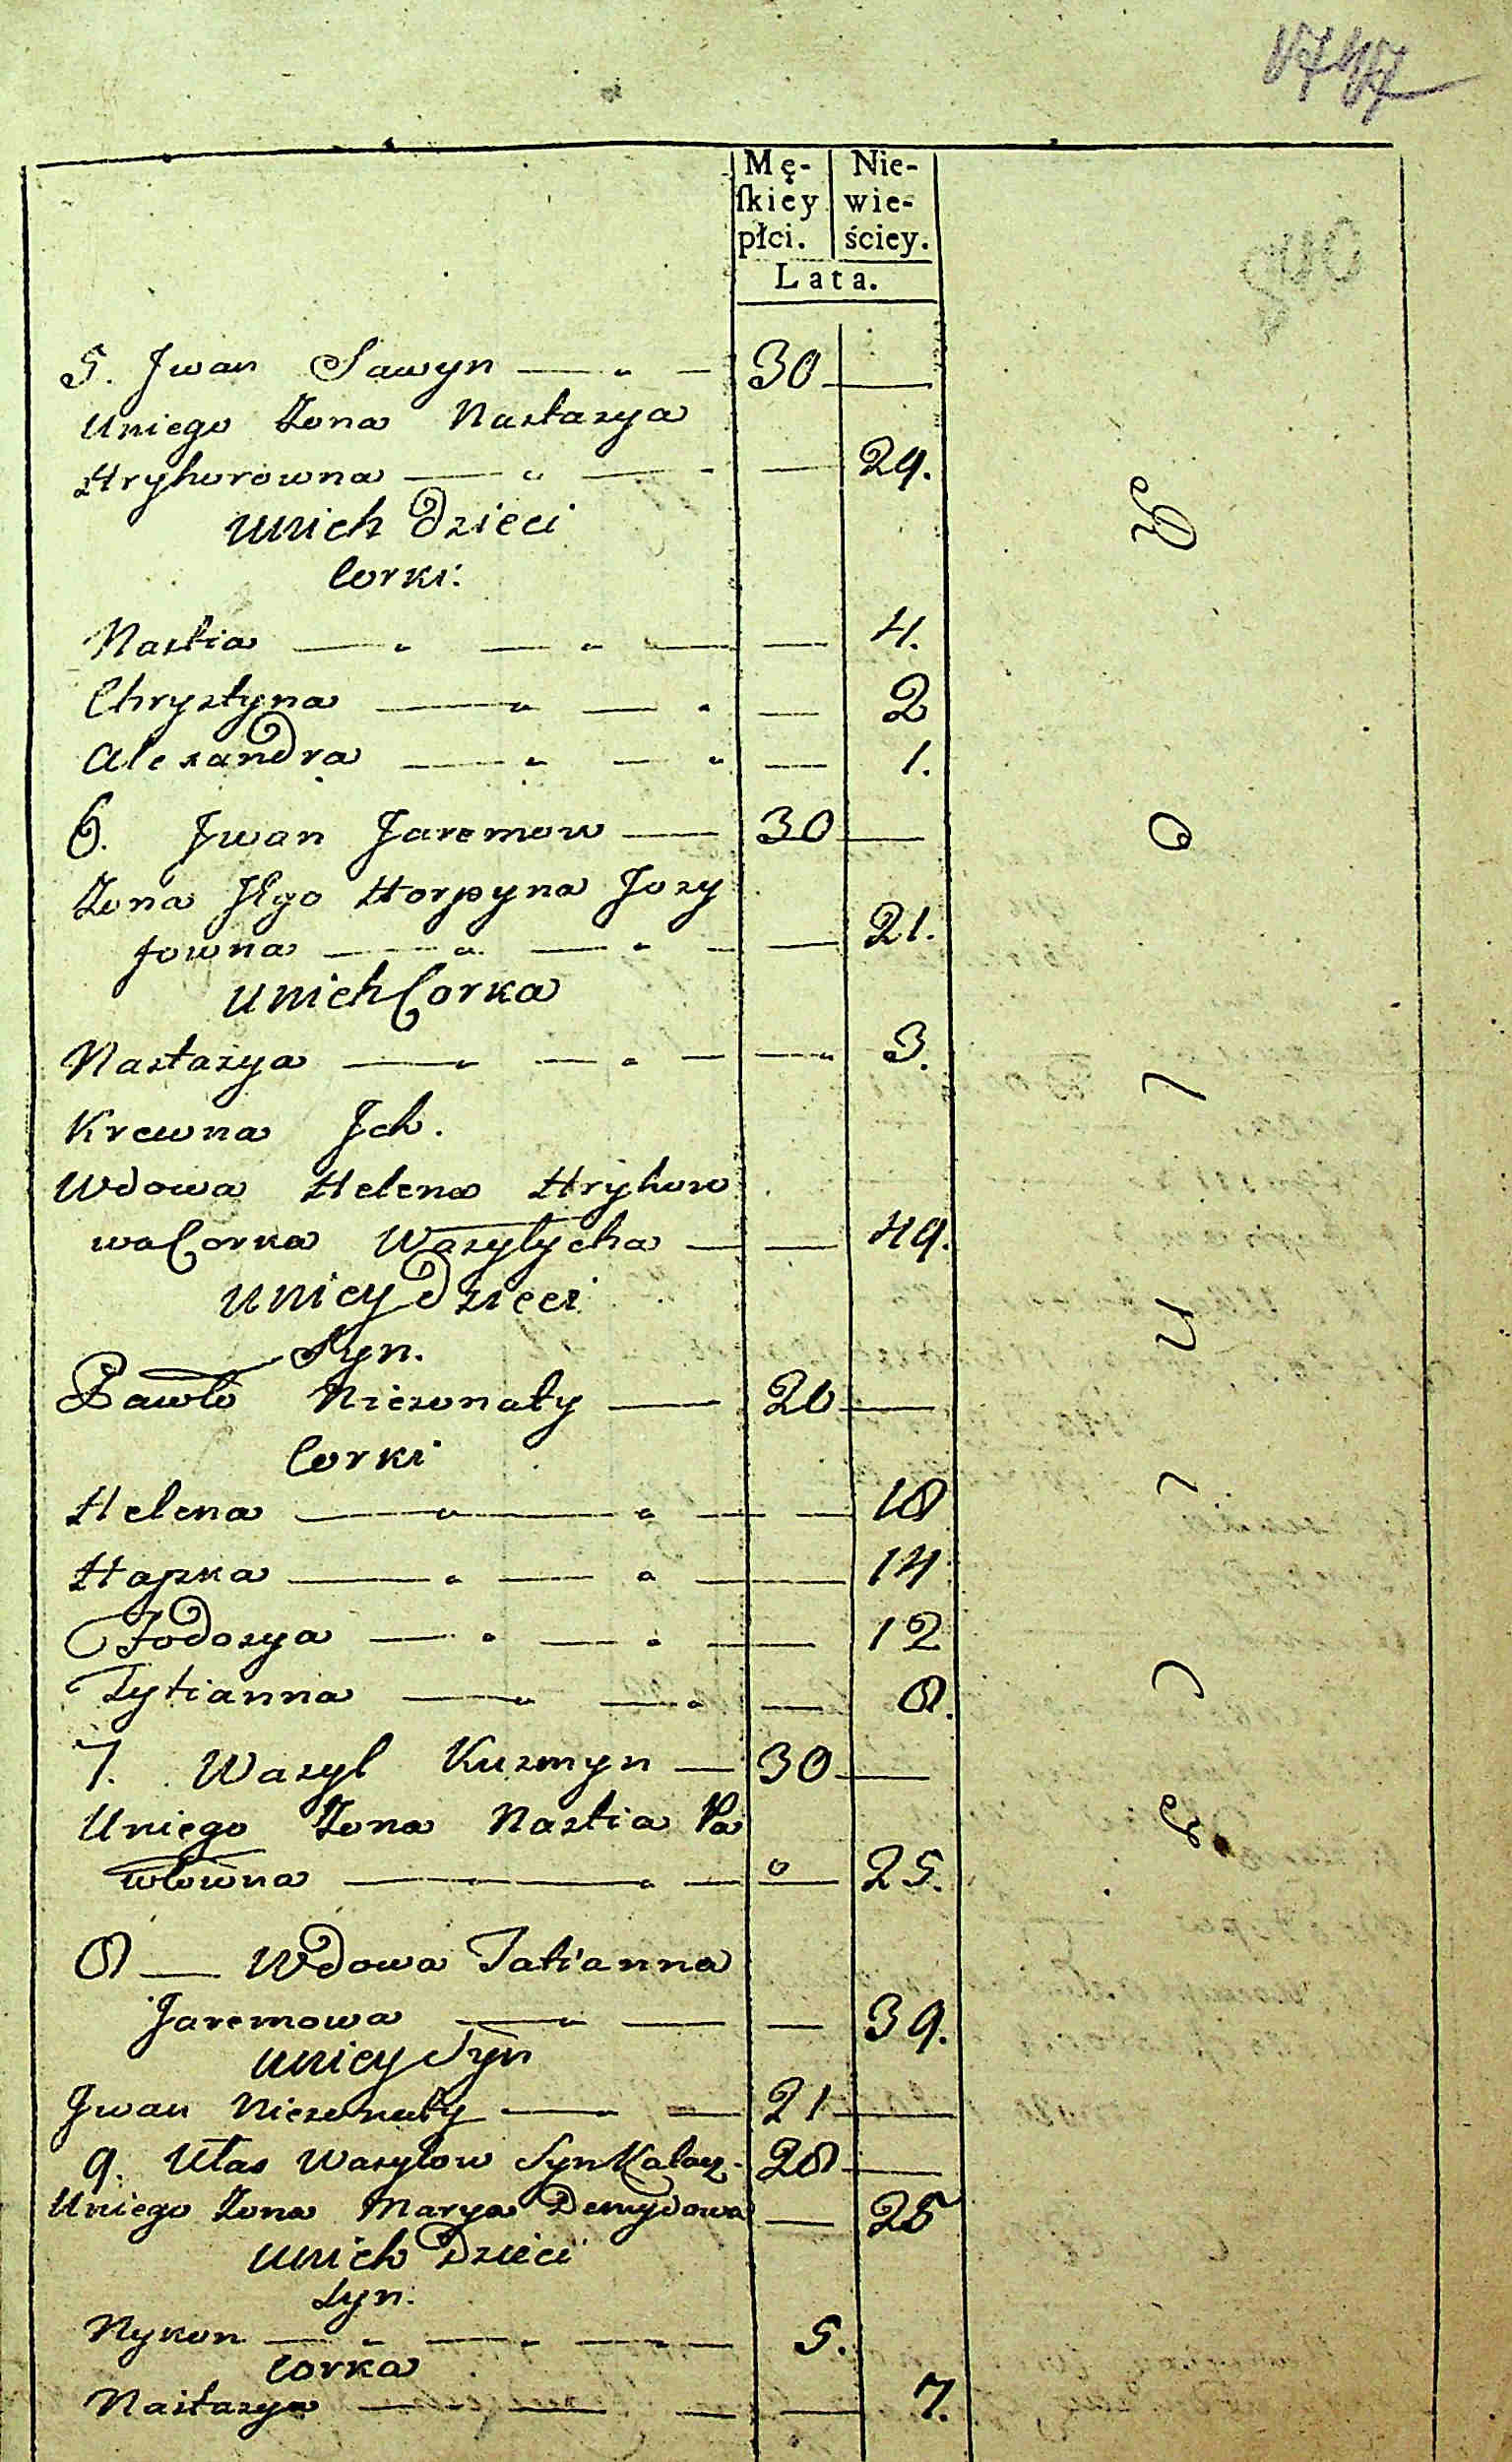 Mę- Nie-
ſkiey wie-
płci. ściey.
Lata.
5. Jwan Sawyn 30
Uniego Zona Nastazya
Hryhorowna 29.
Unich Dzieci
Corki:
Nastia 4.
Chrystyna 2
Alexandra 1.
6. Jwan Jaremow 30
Zona Jego Horpyna Jozy
fowna 21.
Unich Corka
Nastazya 3.
Krewna Jch.
Wdowa Helena Hryhoro
wa Corka Wasylycha 49.
Unicy Dzieci
Syn.
Pawło Niezonaty 20
Corki
Helena 18
Hapka 14
Fodosya 12
Tytianna 8.
7. Wasyl Kuzmyn 30
Uniego Zona Nastia Pa
włowna 25.
8 Wdowa Tatianna
Jaremowa 39.
Unicy Syn
Jwan Niezonaty 21
9. Ułas Wasylow Syn 28
Uniego Zona Marya Demydowa 25
Unich Dzieci
Syn.
Nykon 5.
Corka
Nastazya 7.